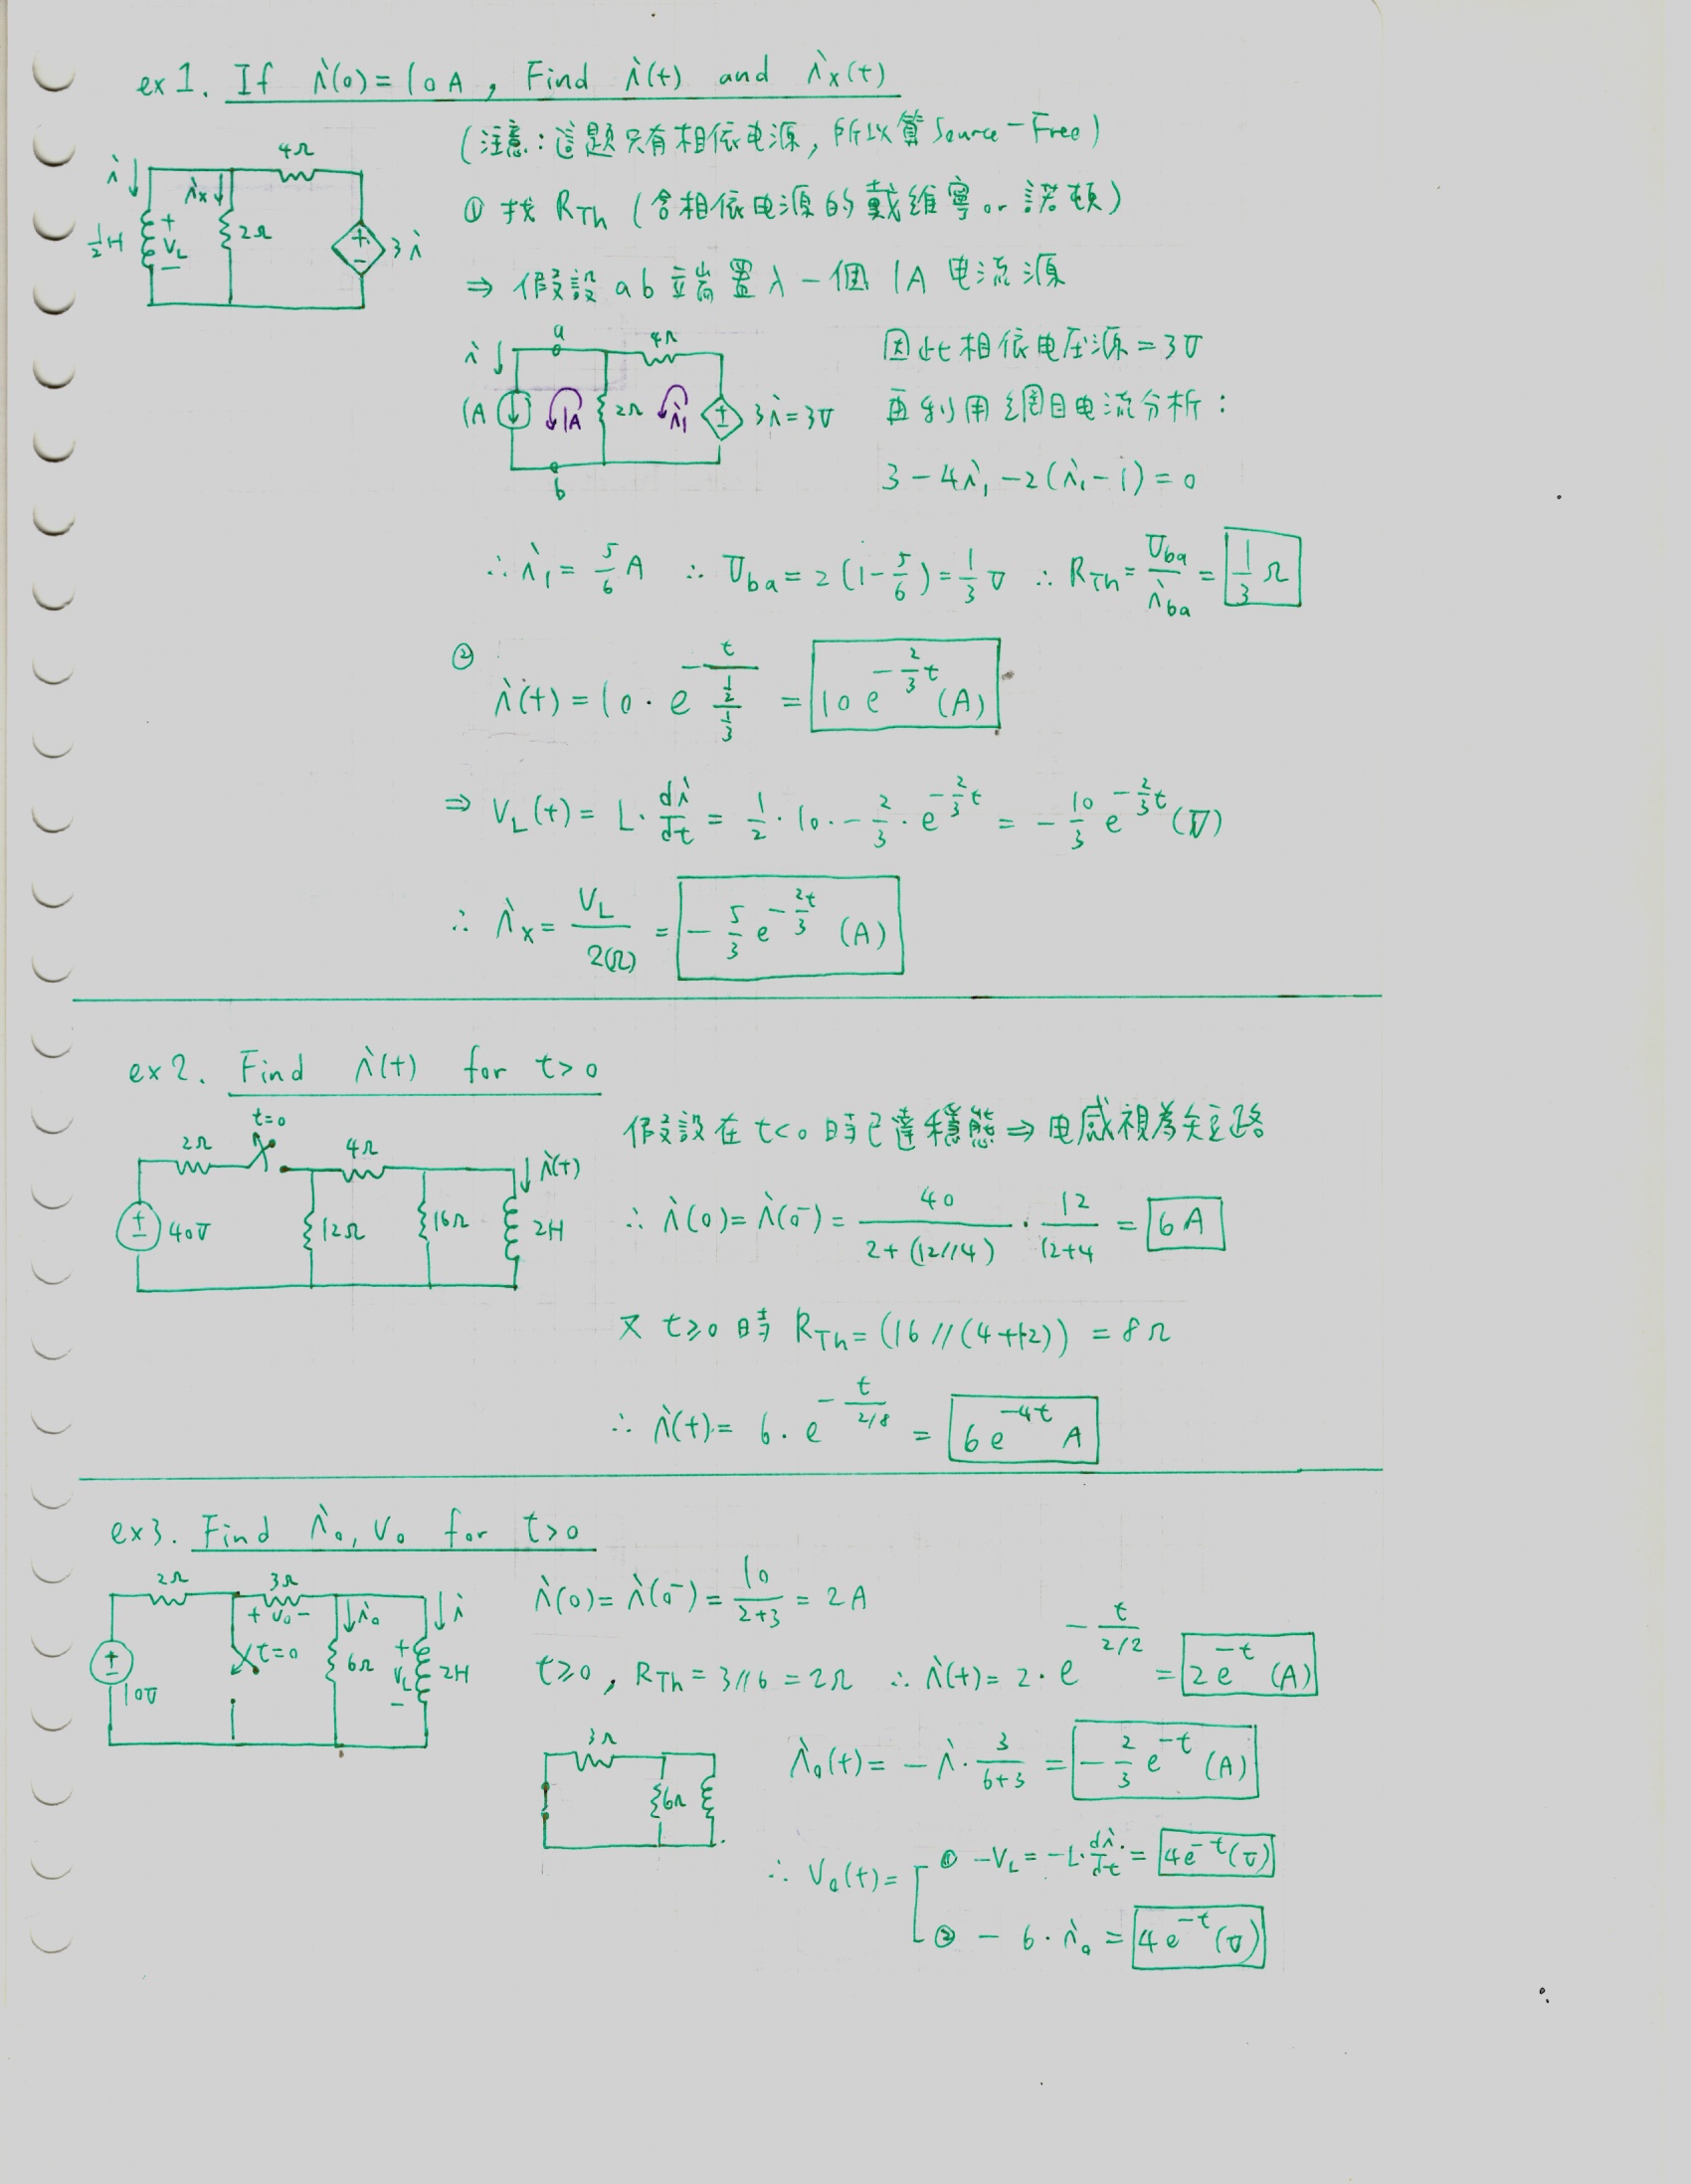 ex1. If i(0)=10A, Find i(t) and ix(t)
(注意:這題只有相依电源,所以算Source-Free)
① 找 RTh (含相依电源的戴維寧 or 諾頓)
⇒ 假設 ab 端置入一個 1A 电流源
i 4Ω ix 1/2H + VL − 2Ω + − 3i
因此相依电压源=3V
再利用網目电流分析:
i a 4Ω 1A 1A 2Ω i1 ± 3i=3V b
3-4i1-2(i1-1)=0
∴ i1=5/6 A ∴ Vba=2(1-5/6)=1/3 V ∴ RTh=Vba/iba=1/3 Ω
② i(t)=10·e^(-t/((1/2)/(1/3)))=10e^(-2/3 t)(A)
⇒ VL(t)=L·di/dt=1/2·10·-2/3·e^(-2/3 t)=-10/3 e^(-2/3 t)(V)
∴ ix=VL/2(Ω)=-5/3 e^(-2t/3) (A)
ex2. Find i(t) for t>0
假設在 t<0 時已達穩態⇒电感視為短路
2Ω t=0 4Ω i(t) ± 40V 12Ω 16Ω 2H
∴ i(0)=i(0⁻)=40/(2+(12//4))·12/(12+4)=6A
又 t≥0 時 RTh=(16//(4+12))=8Ω
∴ i(t)=6·e^(-t/(2/8))=6e^(-4t) A
ex3. Find io, Vo for t>0
2Ω 3Ω + Vo − io i t=0 ± 10V 6Ω + VL − 2H
i(0)=i(0⁻)=10/(2+3)=2A
t≥0, RTh=3//6=2Ω ∴ i(t)=2·e^(-t/(2/2))=2e^(-t) (A)
3Ω 6Ω
io(t)=-i·3/(6+3)=-2/3 e^(-t) (A)
∴ Vo(t)= ① -VL=-L·di/dt=4e^(-t)(V)
② -6·io=4e^(-t)(V)